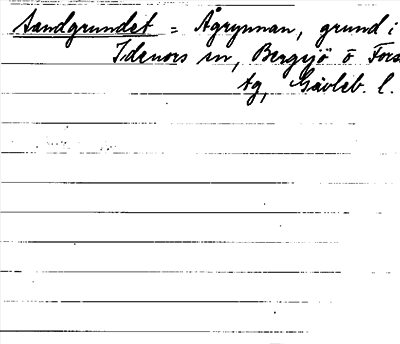 Sandgrundet = Ågrynnan, grund i
Idenors sn, Bergsjö o Fors
tg, Gävleb. l.